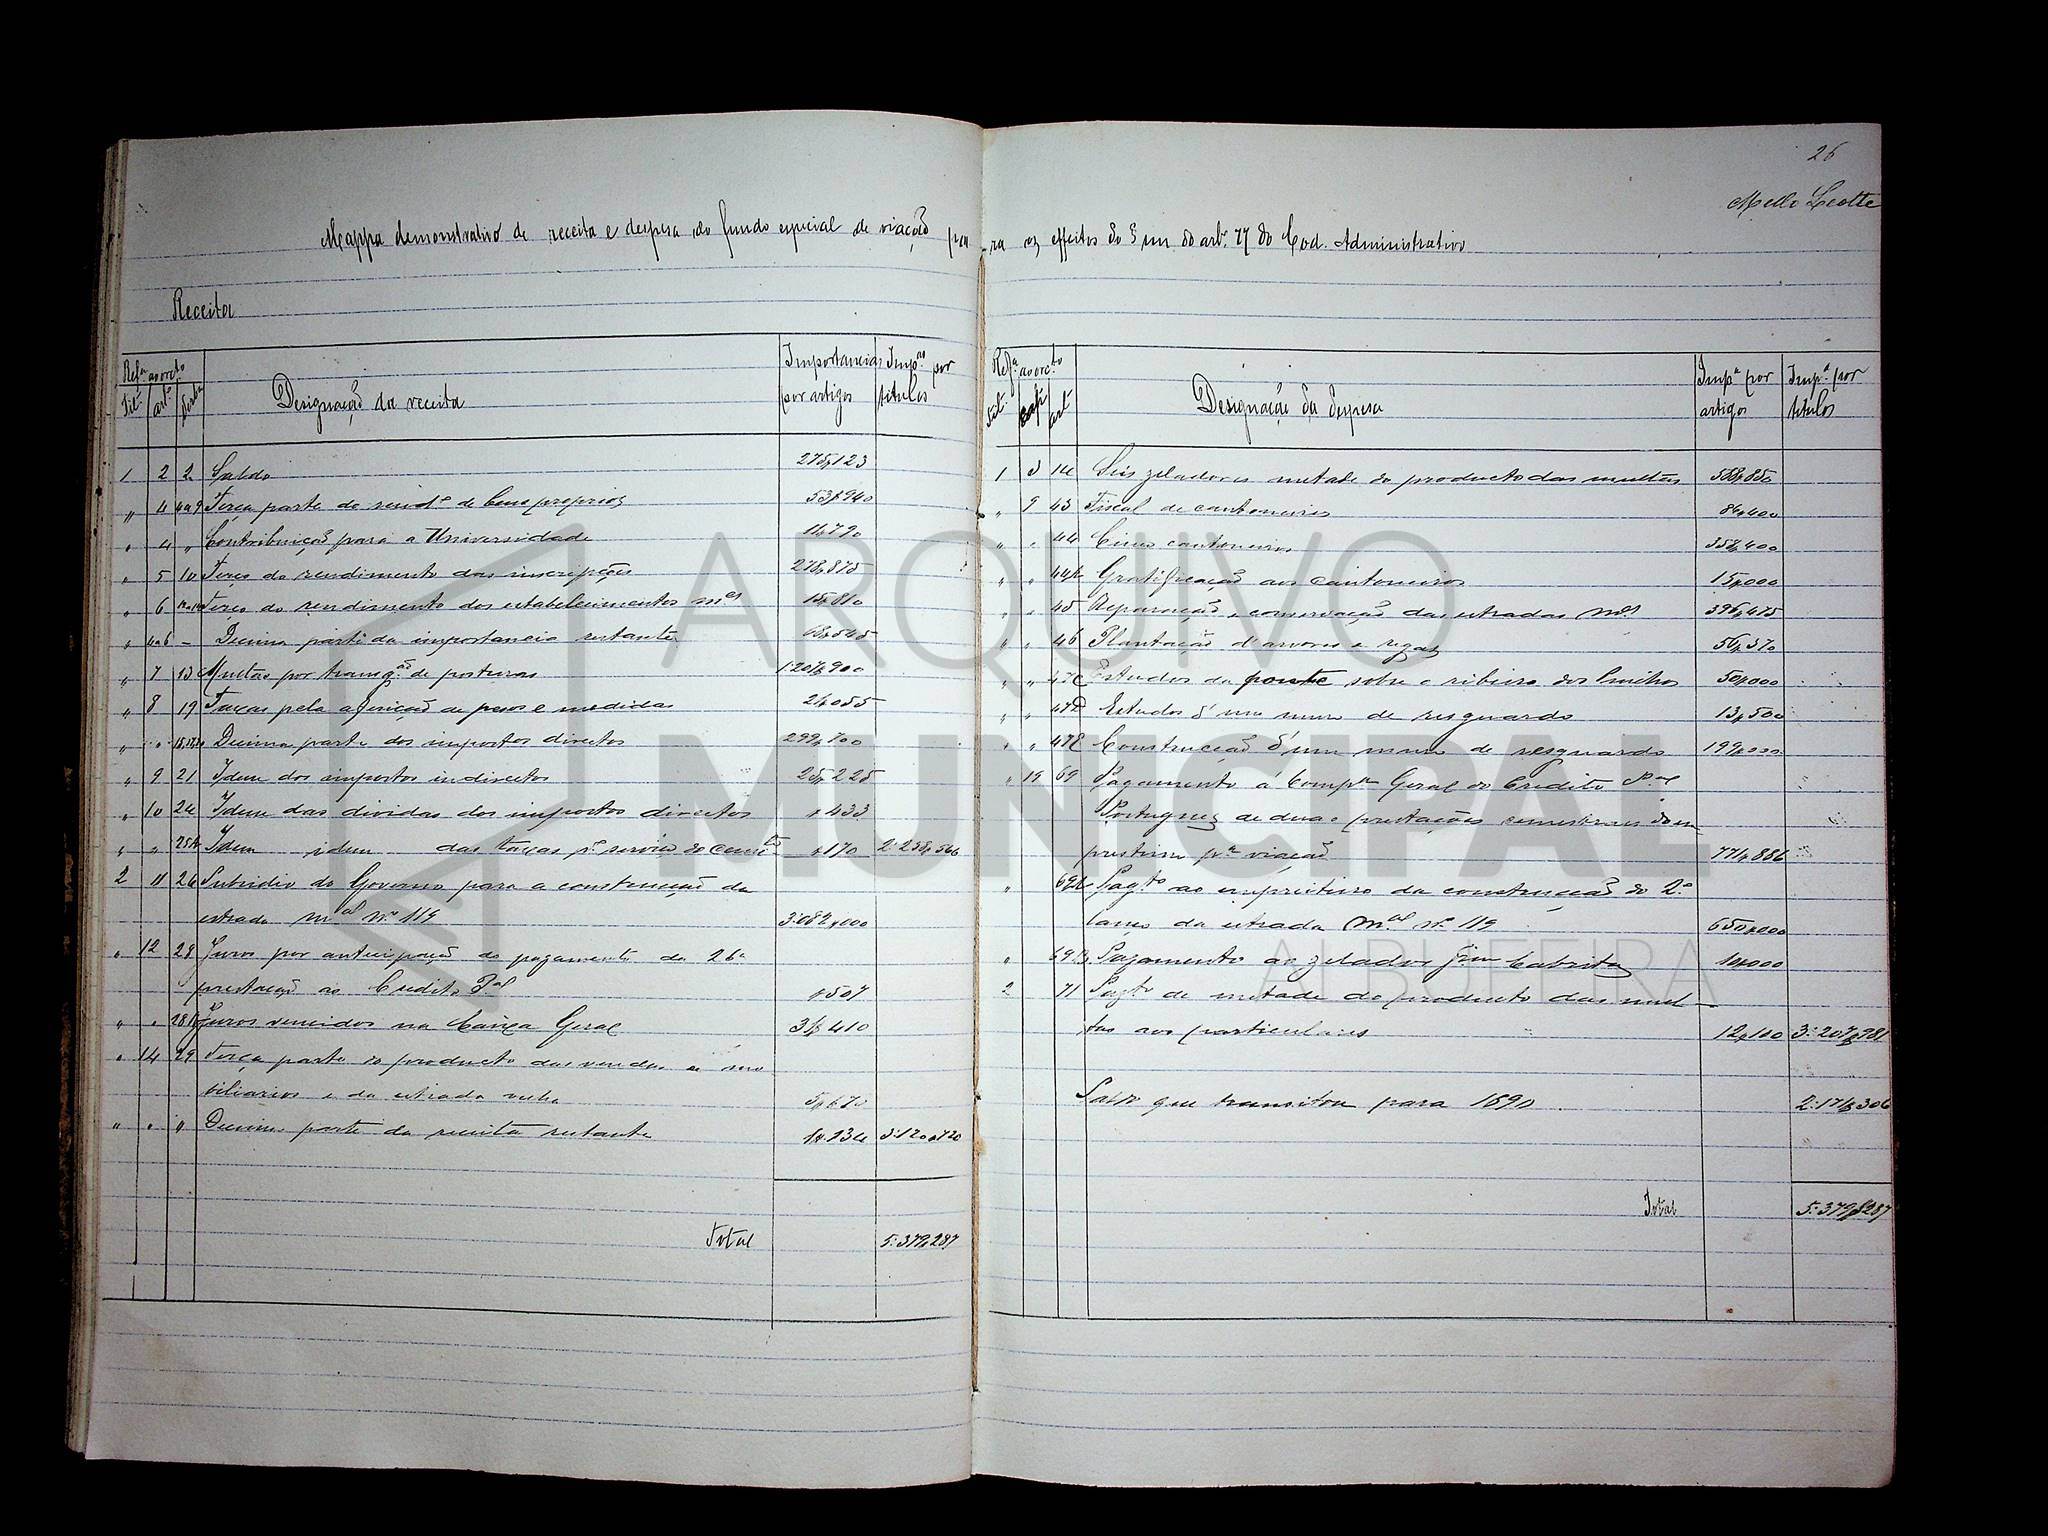 26
Mello Leotte
Mappa demonstrativo de receita e despesa do fundo especial de viação para os effeitos do § un. do artº. 77 do Cod. Administrativo
Receita
Refª ao orctº
Tit. artº verba
Designação da receita
Importancias por artigos
Impªˢ por titulos
1 2 2 Saldo 275,123
" 4 4a9 Terça parte do rendº de bens proprios 53,940
" 4 " Contribuição para a Universidade
" 5 10 Terço do rendimento das inscripções 278,875
" 6 Terço do rendimento dos estabelecimentos mᵉˢ 15,810
" 4a6 – Decima parte da importancia restante 68,545
" 7 13 Multas por transgªᵒ de posturas 1:207,900
" 8 19 Taxas pela aferição de pesos e medidas 24,055
" " Decima parte dos impostos directos 299,700
" 9 21 Idem dos impostos indirectos 25,225
" 10 24 Idem das dividas dos impostos directos ,433
" " 25A Idem idem das taxas pº serviço do cemitº ,170 2:258,566
2 11 26 Subsidio do Governo para a construcção da
estrada mᵃˡ nº 119 3:082,000
" 12 28 Juros por antecipação do pagamento da 26ª
prestação ao Credito Pᵃˡ ,507
" " Juros vencidos na Caixa Geral 31,410
" 14 29 Terça parte do producto das vendas de mo
biliarios e da estrada velha 5,670
" " " Decima parte da receita restante 3:120,720
Total 5:379,287
Refª ao orctº
tit. cap. art
Designação da despesa
Impª por artigos
Impª por titulos
1 3 14 Seis zeladores metade do producto das multas 588,850
" 9 43 Fiscal de cantoneiros 86,400
" " 44 Cinco cantoneiros 358,400
" " 44A Gratificação aos cantoneiros 15,000
" " 45 Reparação e conservação das estradas mᵉˢ 396,475
" " 46 Plantação d'arvores e regas 56,370
" " 47C Estudos da ponte sobre o ribeiro dos 50,000
" " 47D Estudos d'um muro de resguardo 13,500
" " 47E Construcção d'um muro de resguardo 199,000
" 19 69 Pagamento á Compª Geral do Credito Pᵃˡ
Portuguez de duas prestações semestraes do em
prestimo pª viação 771,886
" 69A Pagtº ao empreiteiro da construcção do 2.º
lanço da estrada Mᵃˡ nº 119 650,000
" 69B Pagamento ao zelador Jᵐ Cabrita 10,000
2 71 Pagtº de metade do producto das mul-
tas aos particulares 12,100 3:207,981
Saldo que transitou para 1890 2:171,306
Total 5:379,287
ARQUIVO
MUNICIPAL
ALBUFEIRA